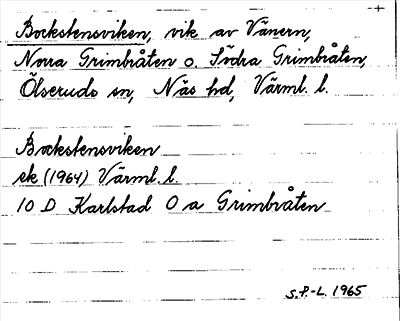 Bockstensviken, vik av Vänern,
Norra Grimbråten o. Södra Grimbråten,
Ölseruds sn, Näs hd, Värml. l.
Bockstensviken
ek (1964) Värml. l.
10 D Karlstad 0 a Grimbråten
S.P.-L. 1965